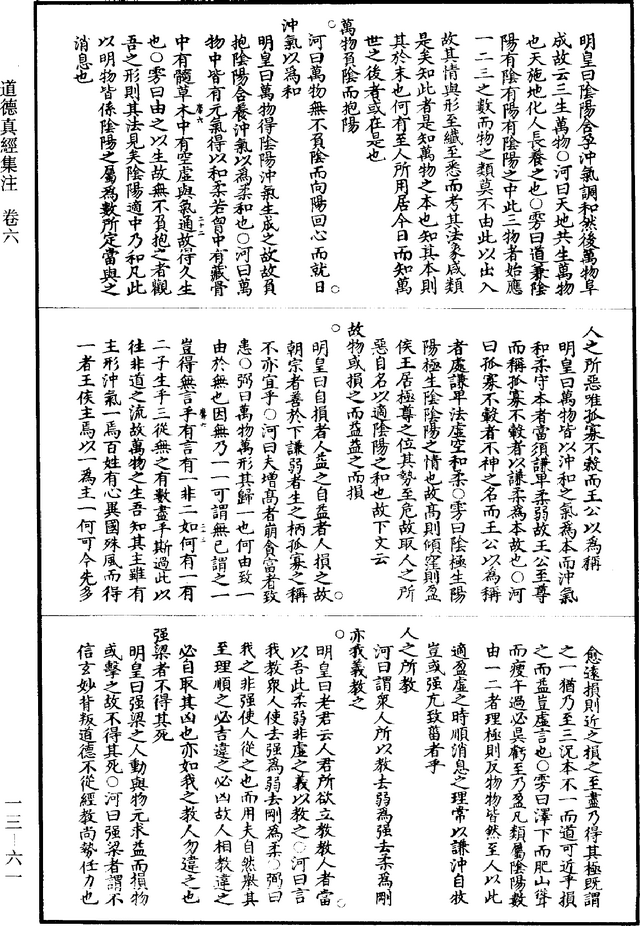 明皇曰陰陽含孚沖氣調和然後萬物阜
成故云三生萬物○河曰天地共生萬物
也天施地化人長養之也○雱曰道兼陰
陽有陰有陽有陰陽之中此三物者始應
一二三之數而物之類莫不由此以出入
故其情與形至纖至悉而考其法象咸類
是矣知此者是知萬物之本也知其本則
其於末也何有至人所用居今日而知萬
世之後者或在是也
萬物負陰而抱陽
河曰萬物無不負陰而向陽回心而就日
沖氣以為和
明皇曰萬物得陰陽沖氣生成之故故負
抱陰陽含養沖氣以為柔和也○河曰萬
物中皆有元氣得以和柔若曾中有藏骨
中有髓草木中有空虛與氣通故得久生
也○雱曰由之以生故無不負抱之者觀
吾之形則其法見矣陰陽適中乃和凡此
以明物皆係陰陽之屬為數所定當與之
消息也
人之所惡唯孤寡不穀而王公以為稱
明皇曰萬物皆以沖和之氣為本而沖氣
和柔守本者當須謙卑柔弱故王公至尊
而稱孤寡不穀者以謙柔為本故也○河
曰孤寡不穀者不神之名而王公以為稱
者處謙卑法虛空和柔○雱曰陰極生陽
陽極生陰陰陽之情也故高則傾窪則盈
侯王居極尊之位其勢至危故取人之所
惡自名以適陰陽之和也故下文云
故物或損之而益益之而損
明皇曰自損者人益之自益者人損之故
朝宗者善於下謙弱者生之柄孤寡之稱
不亦宜乎○河曰夫增高者崩貪富者致
患○弼曰萬物萬形其歸一也何由致一
由於無也因無乃一一可謂無已謂之一
豈得無言乎有言有一非二如何有一有
二子生乎三從無之有數盡乎斯過此以
往非道之流故萬物之生吾知其主雖有
主形沖氣一焉百姓有心異國殊風而得
一者王侯主焉以一為主一何可令先多
愈遠損則近之損之至盡乃得其極既謂
之一猶乃至三況本不一而道可近乎損
之而益豈虛言也○雱曰澤下而肥山聳
而瘦午過必昃虧至乃盈凡類屬陰陽數
由一二者理極則反物物皆然至人以此
適盈虛之時順消息之理常以謙沖自牧
豈或强尤致菑者乎
人之所教
河曰謂衆人所以教去弱為强去柔為剛
亦我義教之
明皇曰老君云人君所欲立教教人者當
以吾此柔弱非虛之義以教之○河曰言
我教衆人使去强為弱去剛為柔○弼曰
我之非强使人從之也而用夫自然舉其
至理順之必吉違之必凶故人相教違之
必自取其凶也亦如我之教人勿違之也
强梁者不得其死
明皇曰强梁之人動與物亢求益而損物
或擊之故不得其死○河曰强梁者謂不
信玄妙背叛道德不從經教尚勢任力也
道德真經集注　卷六
一三—六一